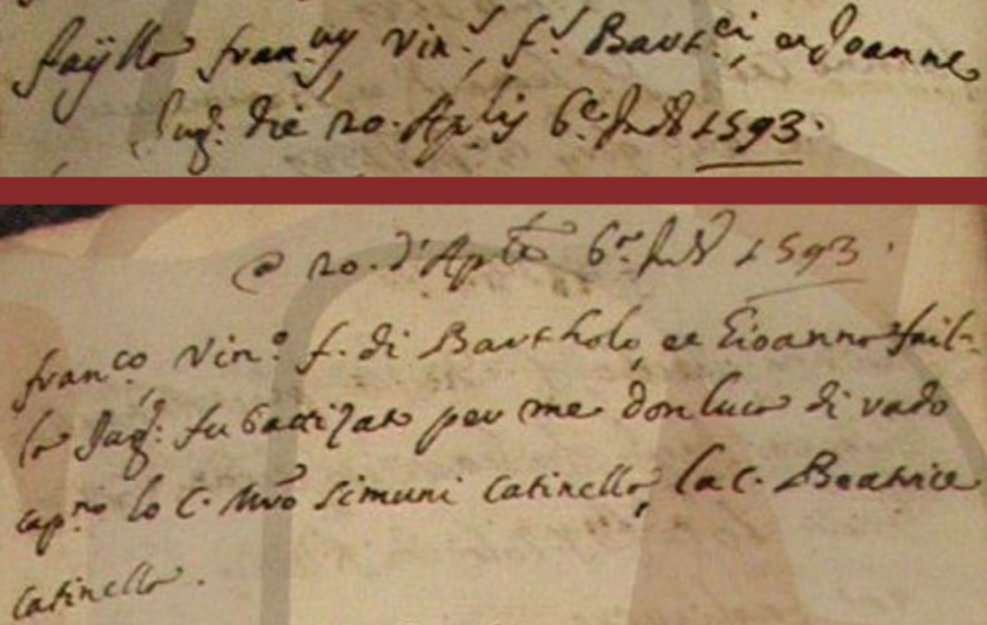 fayllo fran.cus Vin.s f.s Bart.ei, et Joanne
Jug: die 20. Ap.lis 6.e Ind 1593.
a 20. d'Ap.le 6.e Ind 1593.
franco, Vin.o f. di Bartholo, et Gioanna fail-
lo Jug: fu battizato per me don luca di vado
cap.no lo C. Mro simuni Catinello, la C. Beatrice
Catinello.